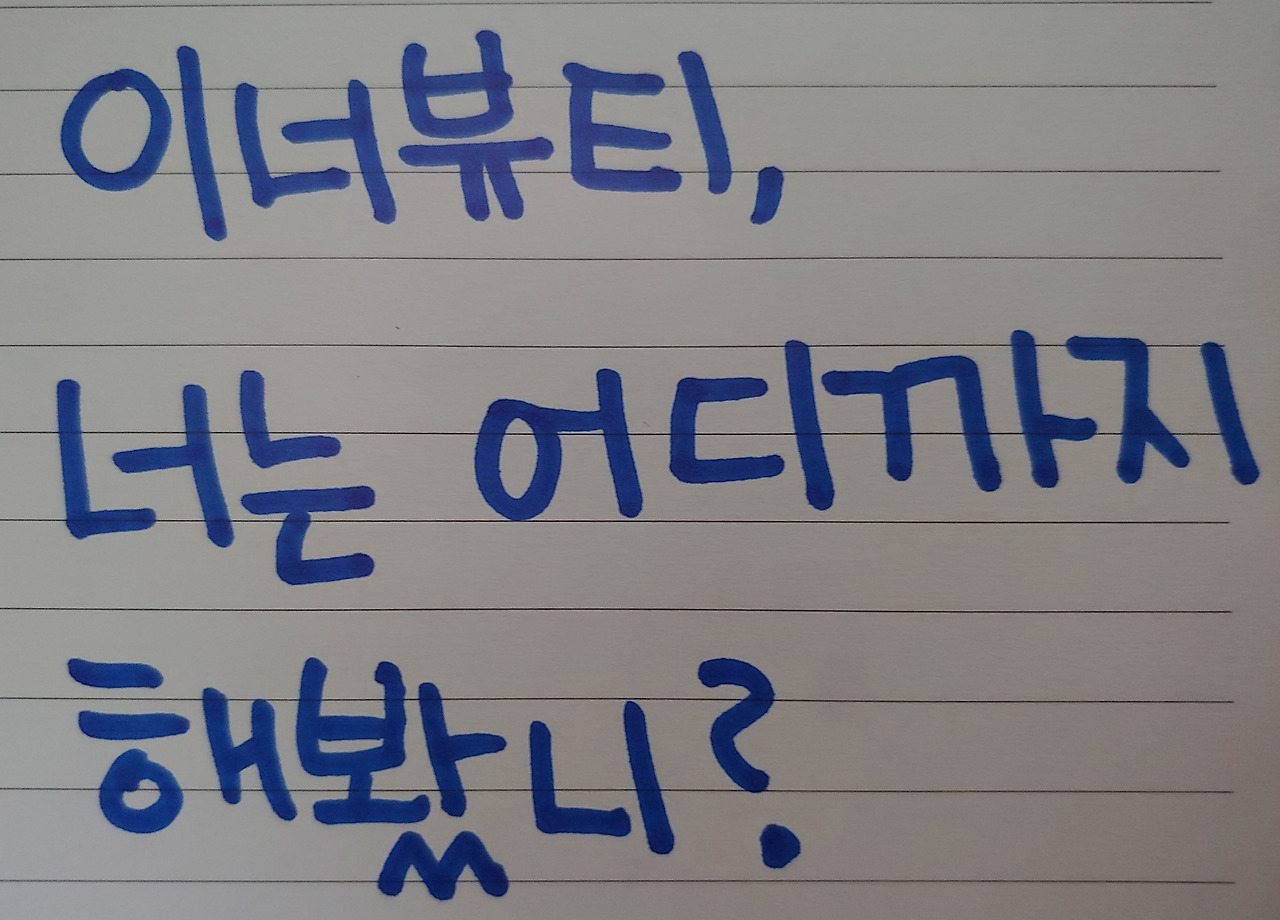 이너뷰티,
너는 어디까지
해봤니?